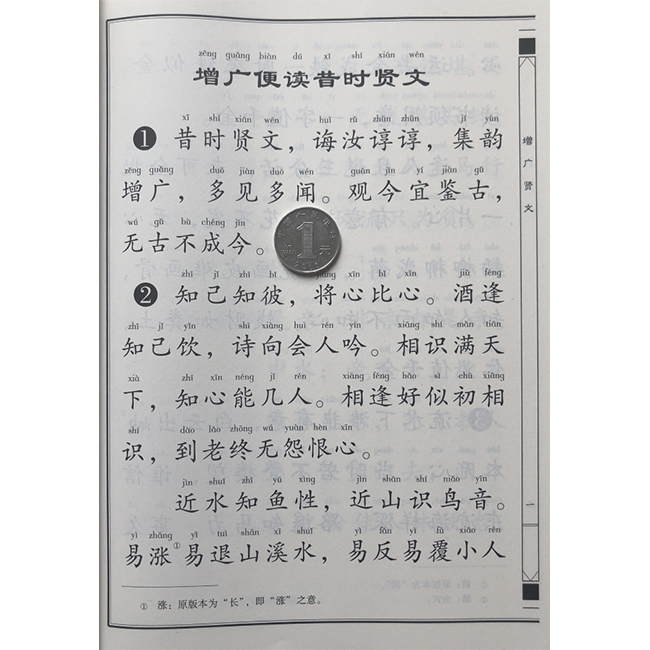 zēng guǎng biàn dú xī shí xián wén
增广便读昔时贤文
xī shí xián wén huì rǔ zhūn zhūn jí yùn
❶ 昔时贤文，诲汝谆谆，集韵
zēng guǎng duō jiàn duō wén guān jīn yí jiàn gǔ
增广，多见多闻。观今宜鉴古，
wú gǔ bù chéng jīn
无古不成今。
1元
zhī jǐ zhī bǐ jiāng xīn bǐ xīn jiǔ féng
❷ 知己知彼，将心比心。酒逢
zhī jǐ yǐn shī xiàng huì rén yín xiāng shí mǎn tiān
知己饮，诗向会人吟。相识满天
xià zhī xīn néng jǐ rén xiāng féng hǎo sì chū xiāng
下，知心能几人。相逢好似初相
shí dào lǎo zhōng wú yuàn hèn xīn
识，到老终无怨恨心。
jìn shuǐ zhī yú xìng jìn shān shí niǎo yīn
近水知鱼性，近山识鸟音。
yì zhǎng yì tuì shān xī shuǐ yì fǎn yì fù xiǎo rén
易涨①易退山溪水，易反易覆小人
① 涨：原版本为“长”，即“涨”之意。
增广贤文
一